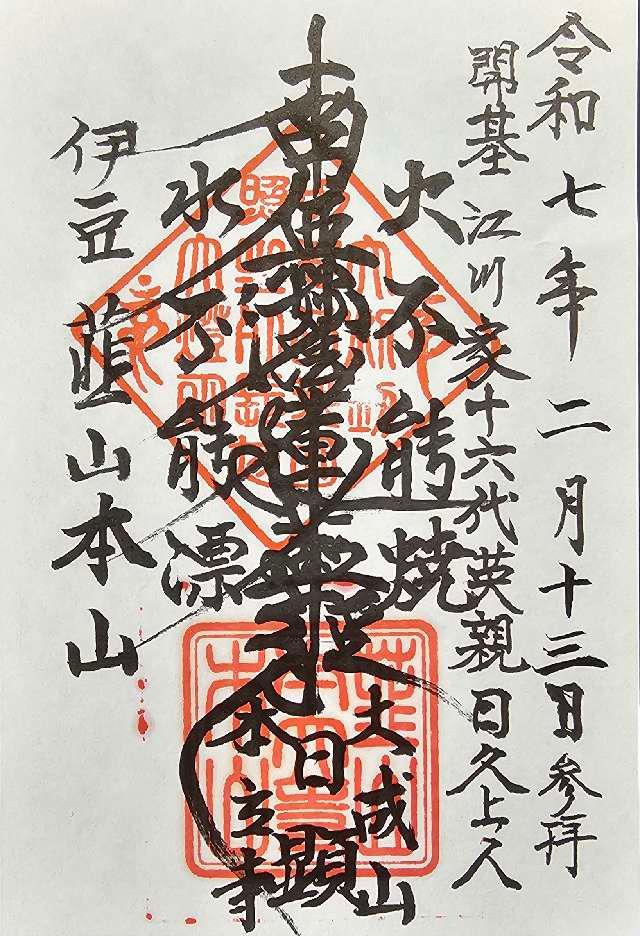 令和七年二月十三日参拝
開基江川家十六代英親日久上人
火不能焼
大成山
南無妙法蓮華経
日顕
水不能漂
本立寺
伊豆韮山本山